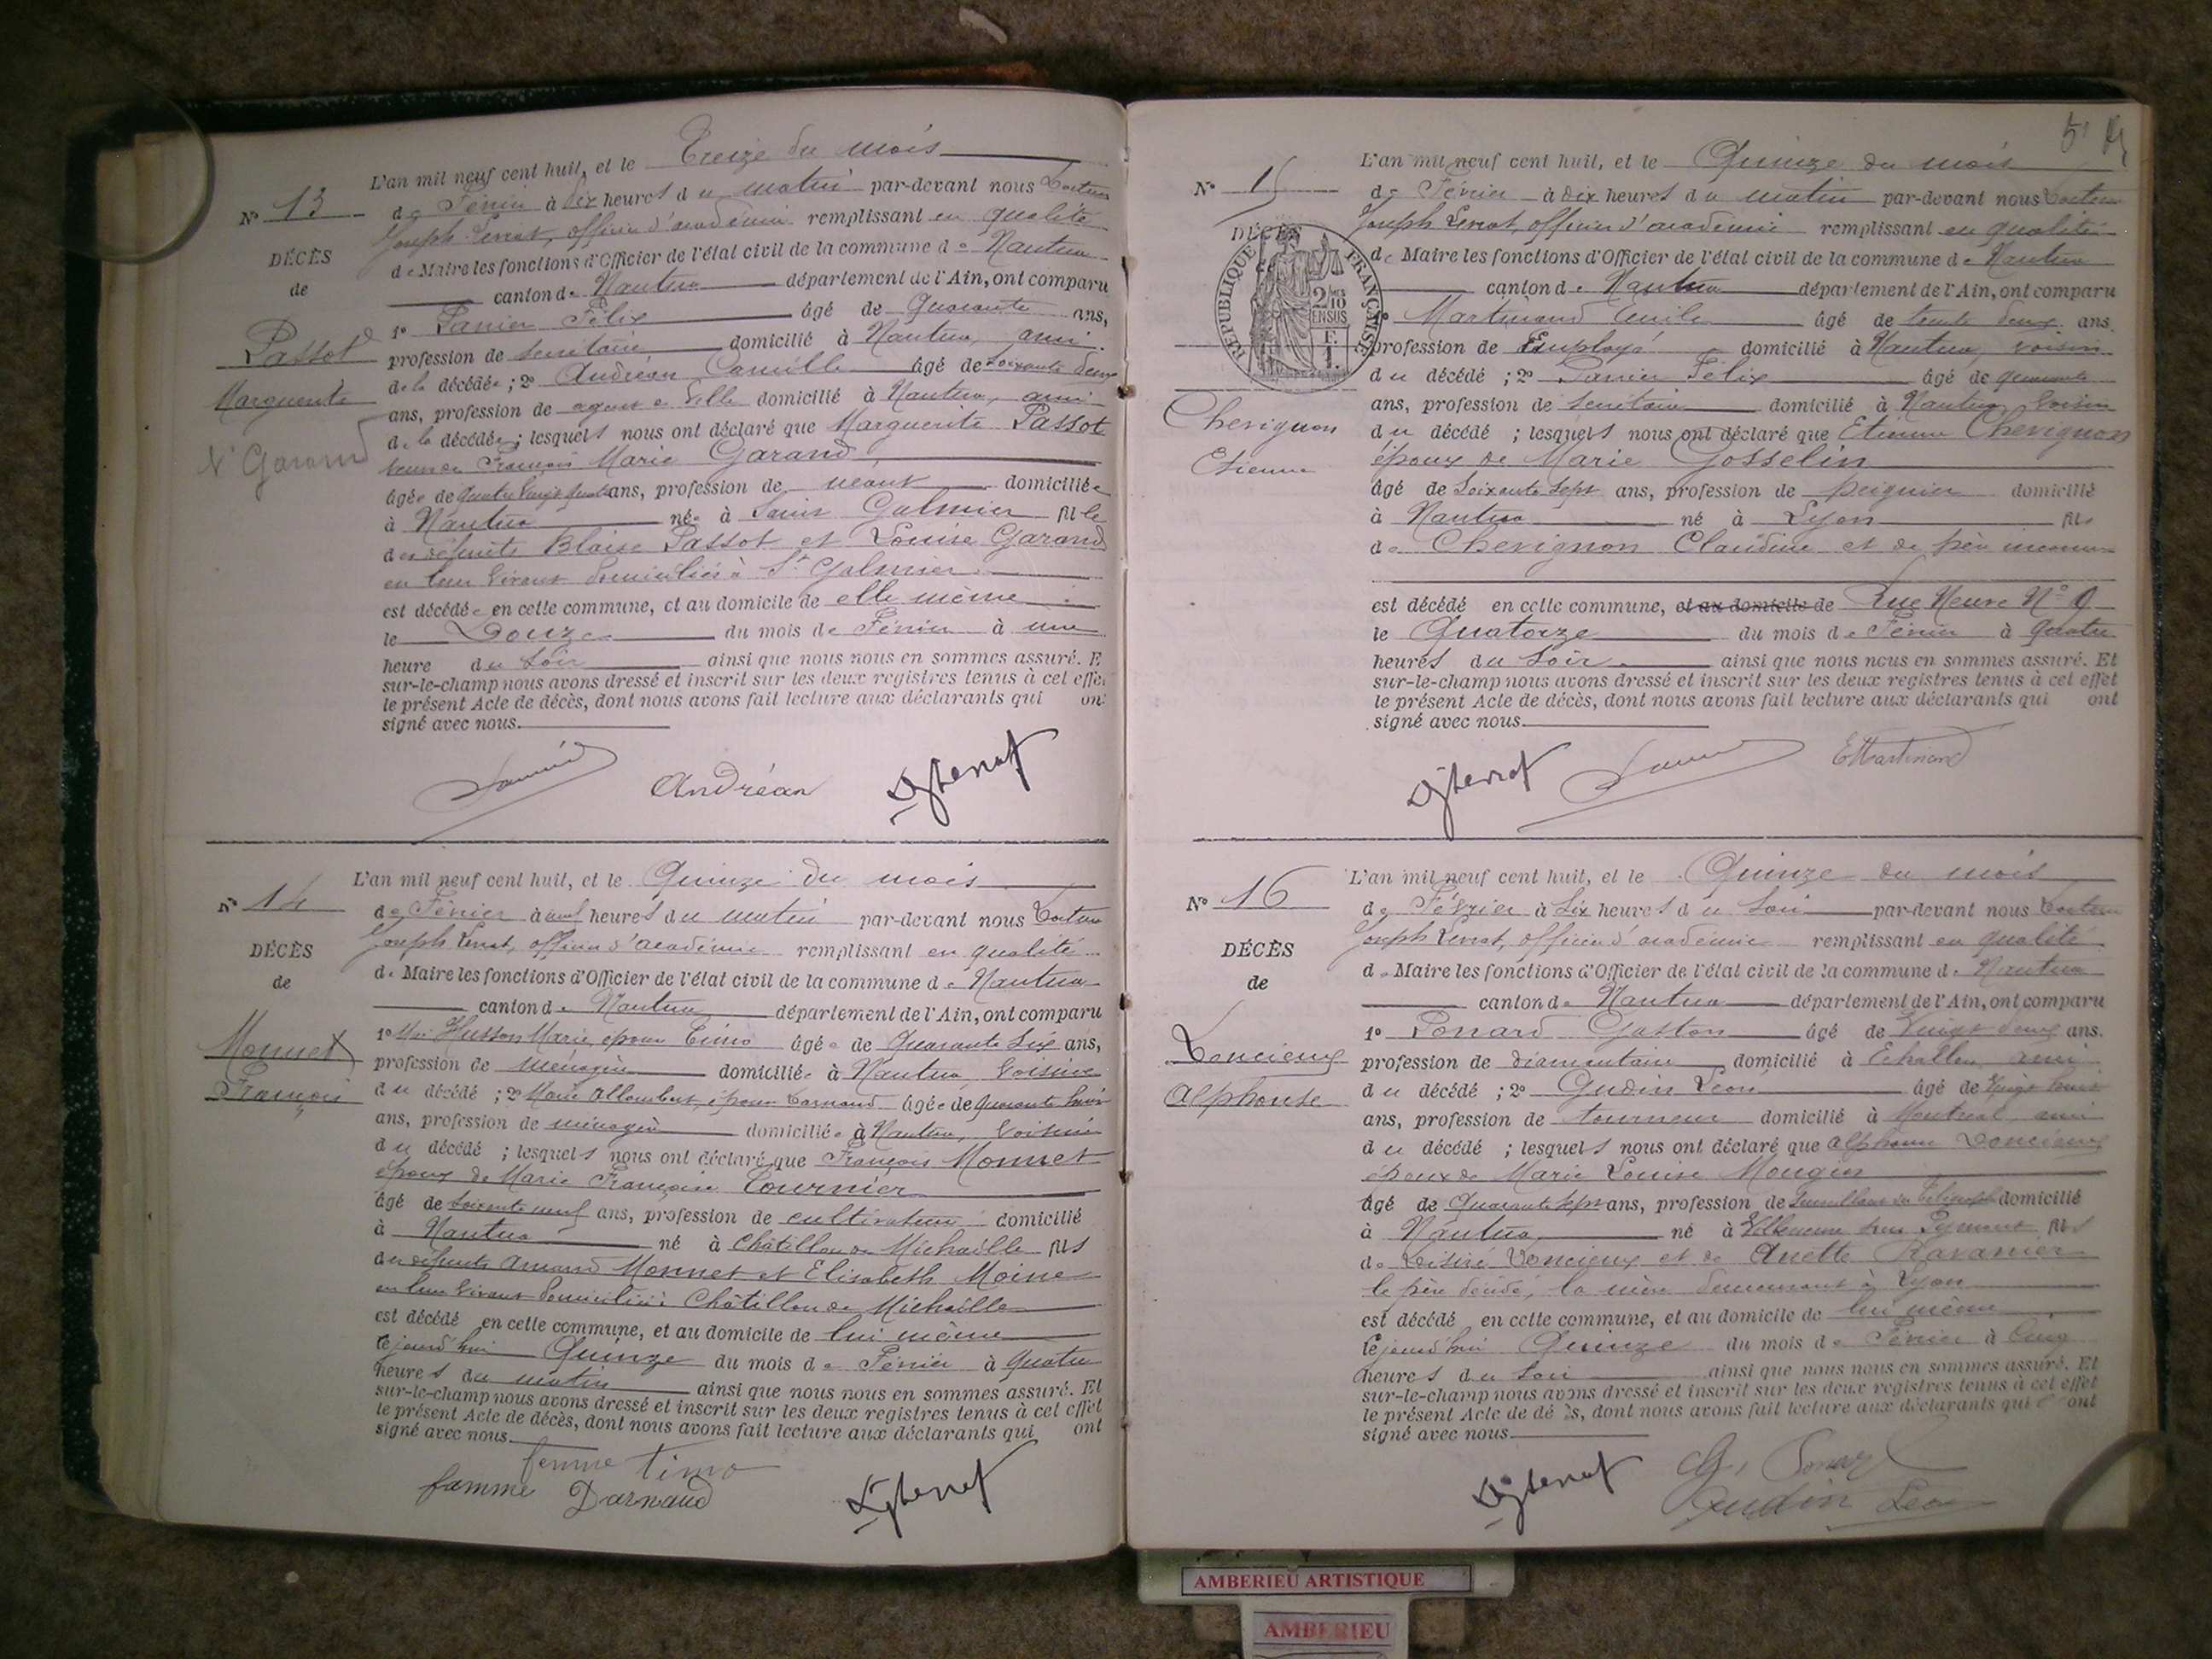 L'an mil neuf cent huit, et le Treize du mois
N° 13
de Février à dix heures du matin par-devant nous Docteur
Joseph Levrat, officier d'académie remplissant en qualité
DÉCÈS
de Maire les fonctions d'Officier de l'état civil de la commune de Nantua
de
canton de Nantua département de l'Ain, ont comparu
1° Panier Félix âgé de quarante ans,
Passot
profession de secrétaire domicilié à Nantua, ami
de la décédée; 2° Andréan Camille âgé de soixante deux
Marguerite
ans, profession de agent de ville domicilié à Nantua, ami
de la décédée; lesquels nous ont déclaré que Marguerite Passot
Vᵉ Garand
veuve de François Marie Garand
âgée de quatre vingt ans, profession de néant domiciliée
à Nantua née à Saint Galmier fille
des défunts Blaise Passot et Louise Garand
en leur vivant domiciliés à St Galmier
est décédée en cette commune, et au domicile de elle même
le Douze du mois de Février à une
heure du soir ainsi que nous nous en sommes assuré. E
sur-le-champ nous avons dressé et inscrit sur les deux registres tenus à cet effe
le présent Acte de décès, dont nous avons fait lecture aux déclarants qui ont
signé avec nous.
Andréan
L'an mil neuf cent huit, et le Quinze du mois
N° 14
de Février à neuf heures du matin par-devant nous Docteur
Joseph Levrat, officier d'académie remplissant en qualité
DÉCÈS
de Maire les fonctions d'Officier de l'état civil de la commune de Nantua
de
canton de Nantua département de l'Ain, ont comparu
1° Husson Marie, épouse Timo âgée de Quarante six ans,
Monnet
profession de ménagère domiciliée à Nantua, voisine
François
du décédé; 2° Marie Allombert, épouse Darnaud âgée de quarante huit
ans, profession de ménagère domiciliée à Nantua, voisine
du décédé; lesquels nous ont déclaré que François Monnet
époux de Marie Françoise Tournier
âgé de soixante neuf ans, profession de cultivateur domicilié
à Nantua né à Châtillon de Michaille fils
des défunts Armand Monnet et Elisabeth Moine
en leur vivant domiciliés à Châtillon de Michaille
est décédé en cette commune, et au domicile de lui même
cejourd'hui Quinze du mois de Février à quatre
heures du matin ainsi que nous nous en sommes assuré. Et
sur-le-champ nous avons dressé et inscrit sur les deux registres tenus à cet effet
le présent Acte de décès, dont nous avons fait lecture aux déclarants qui ont
signé avec nous.
femme timo
famme Darnaud
5
L'an mil neuf cent huit, et le Quinze du mois
N° 15
de Février à dix heures du matin par-devant nous Docteur
Joseph Levrat, officier d'académie remplissant en qualité
DÉCÈS
de Maire les fonctions d'Officier de l'état civil de la commune de Nantua
RÉPUBLIQUE FRANÇAISE
2/10 EN SUS
canton de Nantua département de l'Ain, ont comparu
Martinand Emile âgé de trente deux ans
profession de Employé domicilié à Nantua, voisin
du décédé; 2° Panier Félix âgé de quarante
Chevignon
ans, profession de secrétaire domicilié à Nantua, voisin
du décédé; lesquels nous ont déclaré que Etienne Chevignon
Etienne
époux de Marie Gosselin
âgé de soixante sept ans, profession de peignier domicilié
à Nantua né à Lyon fils
de Chevignon Claudine et de père inconnu
est décédé en cette commune, et au domicile de Rue Neuve N° 9
le Quatorze du mois de Février à quatre
heures du soir ainsi que nous nous en sommes assuré. Et
sur-le-champ nous avons dressé et inscrit sur les deux registres tenus à cet effet
le présent Acte de décès, dont nous avons fait lecture aux déclarants qui ont
signé avec nous.
EMartinand
L'an mil neuf cent huit, et le Quinze du mois
N° 16
de Février à six heures du soir par-devant nous Docteur
Joseph Levrat, officier d'académie remplissant en qualité
DÉCÈS
de Maire les fonctions d'Officier de l'état civil de la commune de Nantua
de
canton de Nantua département de l'Ain, ont comparu
1° Ponard Gaston âgé de vingt deux ans.
Doncieux
profession de diamantaire domicilié à Echallon ami
Alphonse
du décédé; 2° Gudin Léon âgé de vingt
ans, profession de tourneur domicilié à Montréal ami
du décédé; lesquels nous ont déclaré que Alphonse Doncieux
époux de Marie Louise Mougin
âgé de Quarante sept ans, profession de surveillant du télégraphe domicilié
à Nantua né à Villeneuve sous Pymont fils
de Désiré Doncieux et de Anette Ravanier
le père décédé, la mère demeurant à Lyon
est décédé en cette commune, et au domicile de lui même
cejourd'hui Quinze du mois de Février à cinq
heures du soir ainsi que nous nous en sommes assuré. Et
sur-le-champ nous avons dressé et inscrit sur les deux registres tenus à cet effet
le présent Acte de dé ès, dont nous avons fait lecture aux déclarants qui ont
signé avec nous
Gudin Leon
AMBERIEU ARTISTIQUE
AMBERIEU